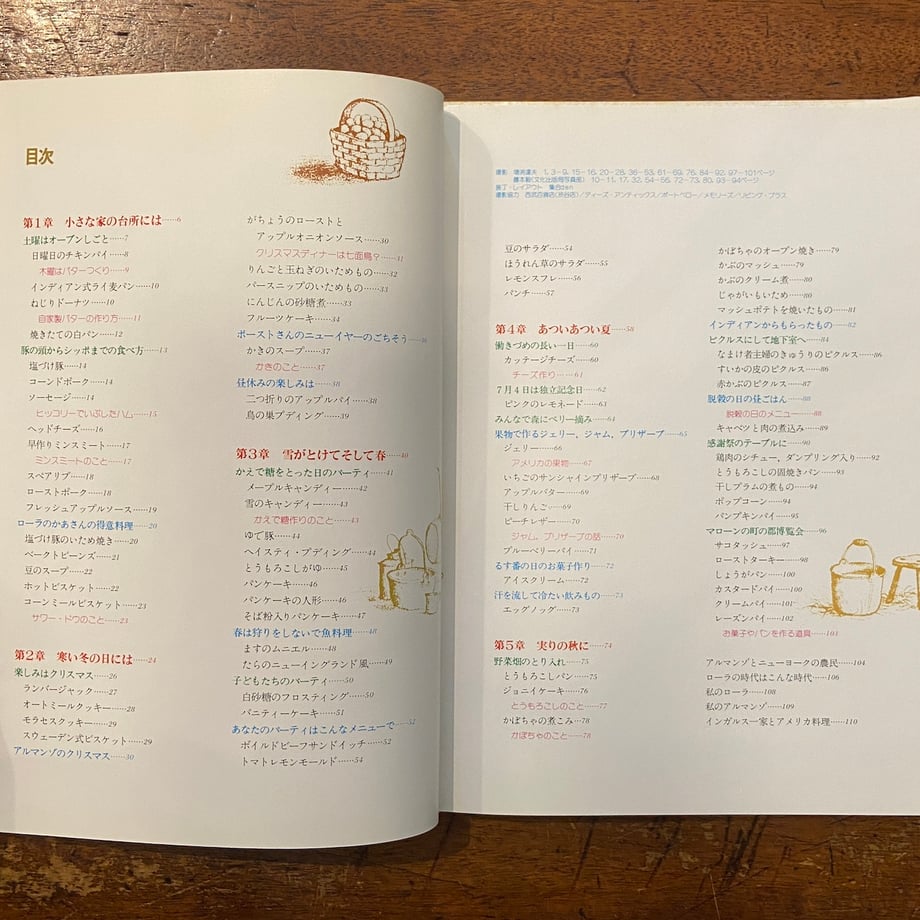 目次
第1章 小さな家の台所には……6
土曜はオーブンしごと……7
日曜日のチキンパイ……8
木曜はバターつくり……9
インディアン式ライ麦パン……10
ねじりドーナツ……10
自家製バターの作り方……11
焼きたての白パン……12
豚の頭からシッポまでの食べ方……13
塩づけ豚……14
コーンドポーク……14
ソーセージ……14
ヒッコリーでいぶしたハム……15
ヘッドチーズ……16
早作りミンスミート……17
ミンスミートのこと……17
スペアリブ……18
ローストポーク……18
フレッシュアップルソース……19
ローラのかあさんの得意料理……20
塩づけ豚のいため焼き……20
ベークトビーンズ……21
豆のスープ……22
ホットビスケット……22
コーンミールビスケット……23
サワー・ドウのこと……23
第2章 寒い冬の日には……24
楽しみはクリスマス……26
ランバージャック……27
オートミールクッキー……28
モラセスクッキー……29
スウェーデン式ビスケット……29
アルマンゾのクリスマス……30
がちょうのローストと
アップルオニオンソース……30
クリスマスディナーは七面鳥?……31
りんごと玉ねぎのいためもの……32
パースニップのいためもの……33
にんじんの砂糖煮……33
フルーツケーキ……34
ボーストさんのニューイヤーのごちそう……36
かきのスープ……37
かきのこと……37
昼休みの楽しみは……38
二つ折りのアップルパイ……38
鳥の巣プディング……39
第3章 雪がとけてそして春……40
かえで糖をとった日のパーティ……41
メープルキャンディー……42
雪のキャンディー……43
かえで糖作りのこと……43
ゆで豚……44
ヘイスティ・プディング……44
とうもろこしがゆ……45
パンケーキ……46
パンケーキの人形……46
そば粉入りパンケーキ……47
春は狩りをしないで魚料理……48
ますのムニエル……48
たらのニューイングランド風……49
子どもたちのパーティ……50
白砂糖のフロスティング……50
バニティーケーキ……51
あなたのパーティはこんなメニューで……52
ボイルドビーフサンドイッチ……52
トマトレモンモールド……54
1, 3−9, 15−16, 20−28, 36−53, 61−69, 76, 84−92, 97−101ページ
10−11, 17, 32, 54−56, 72−73, 80, 93−94ページ
豆のサラダ……54
ほうれん草のサラダ……55
レモンスフレ……56
パンチ……57
第4章 あついあつい夏……58
働きづめの長い一日……60
カッテージチーズ……60
チーズ作り……61
7月4日は独立記念日……62
ピンクのレモネード……63
みんなで森にベリー摘み……64
果物で作るジェリー，ジャム，プリザーブ……65
ジェリー……66
アメリカの果物……67
いちごのサンシャインプリザーブ……68
アップルバター……69
干しりんご……69
ピーチレザー……70
ジャム，プリザーブの話……70
ブルーベリーパイ……71
るす番の日のお菓子作り……72
アイスクリーム……72
汗を流して冷たい飲みもの……73
エッグノッグ……73
第5章 実りの秋に……74
野菜畑のとり入れ……75
とうもろこしパン……75
ジョニイケーキ……76
とうもろこしのこと……77
かぼちゃの煮こみ……78
かぼちゃのこと……78
かぼちゃのオーブン焼き……79
かぶのマッシュ……79
かぶのクリーム煮……80
じゃがいもいため……80
マッシュポテトを焼いたもの……81
インディアンからもらったもの……82
ピクルスにして地下室へ……84
なまけ者主婦のきゅうりのピクルス……86
すいかの皮のピクルス……86
赤かぶのピクルス……87
脱穀の日の昼ごはん……88
脱穀の日のメニュー……88
キャベツと肉の煮込み……89
感謝祭のテーブルに……90
鶏肉のシチュー，ダンプリング入り……92
とうもろこしの固焼きパン……93
干しプラムの煮もの……94
ポップコーン……94
パンプキンパイ……95
マローンの町の郡博覧会……96
サコタッシュ……97
ローストターキー……98
しょうがパン……100
カスタードパイ……100
クリームパイ……101
レーズンパイ……102
お菓子やパンを作る道具……103
アルマンゾとニューヨークの農民……104
ローラの時代はこんな時代……106
私のローラ……108
私のアルマンゾ……109
インガルス一家とアメリカ料理……110